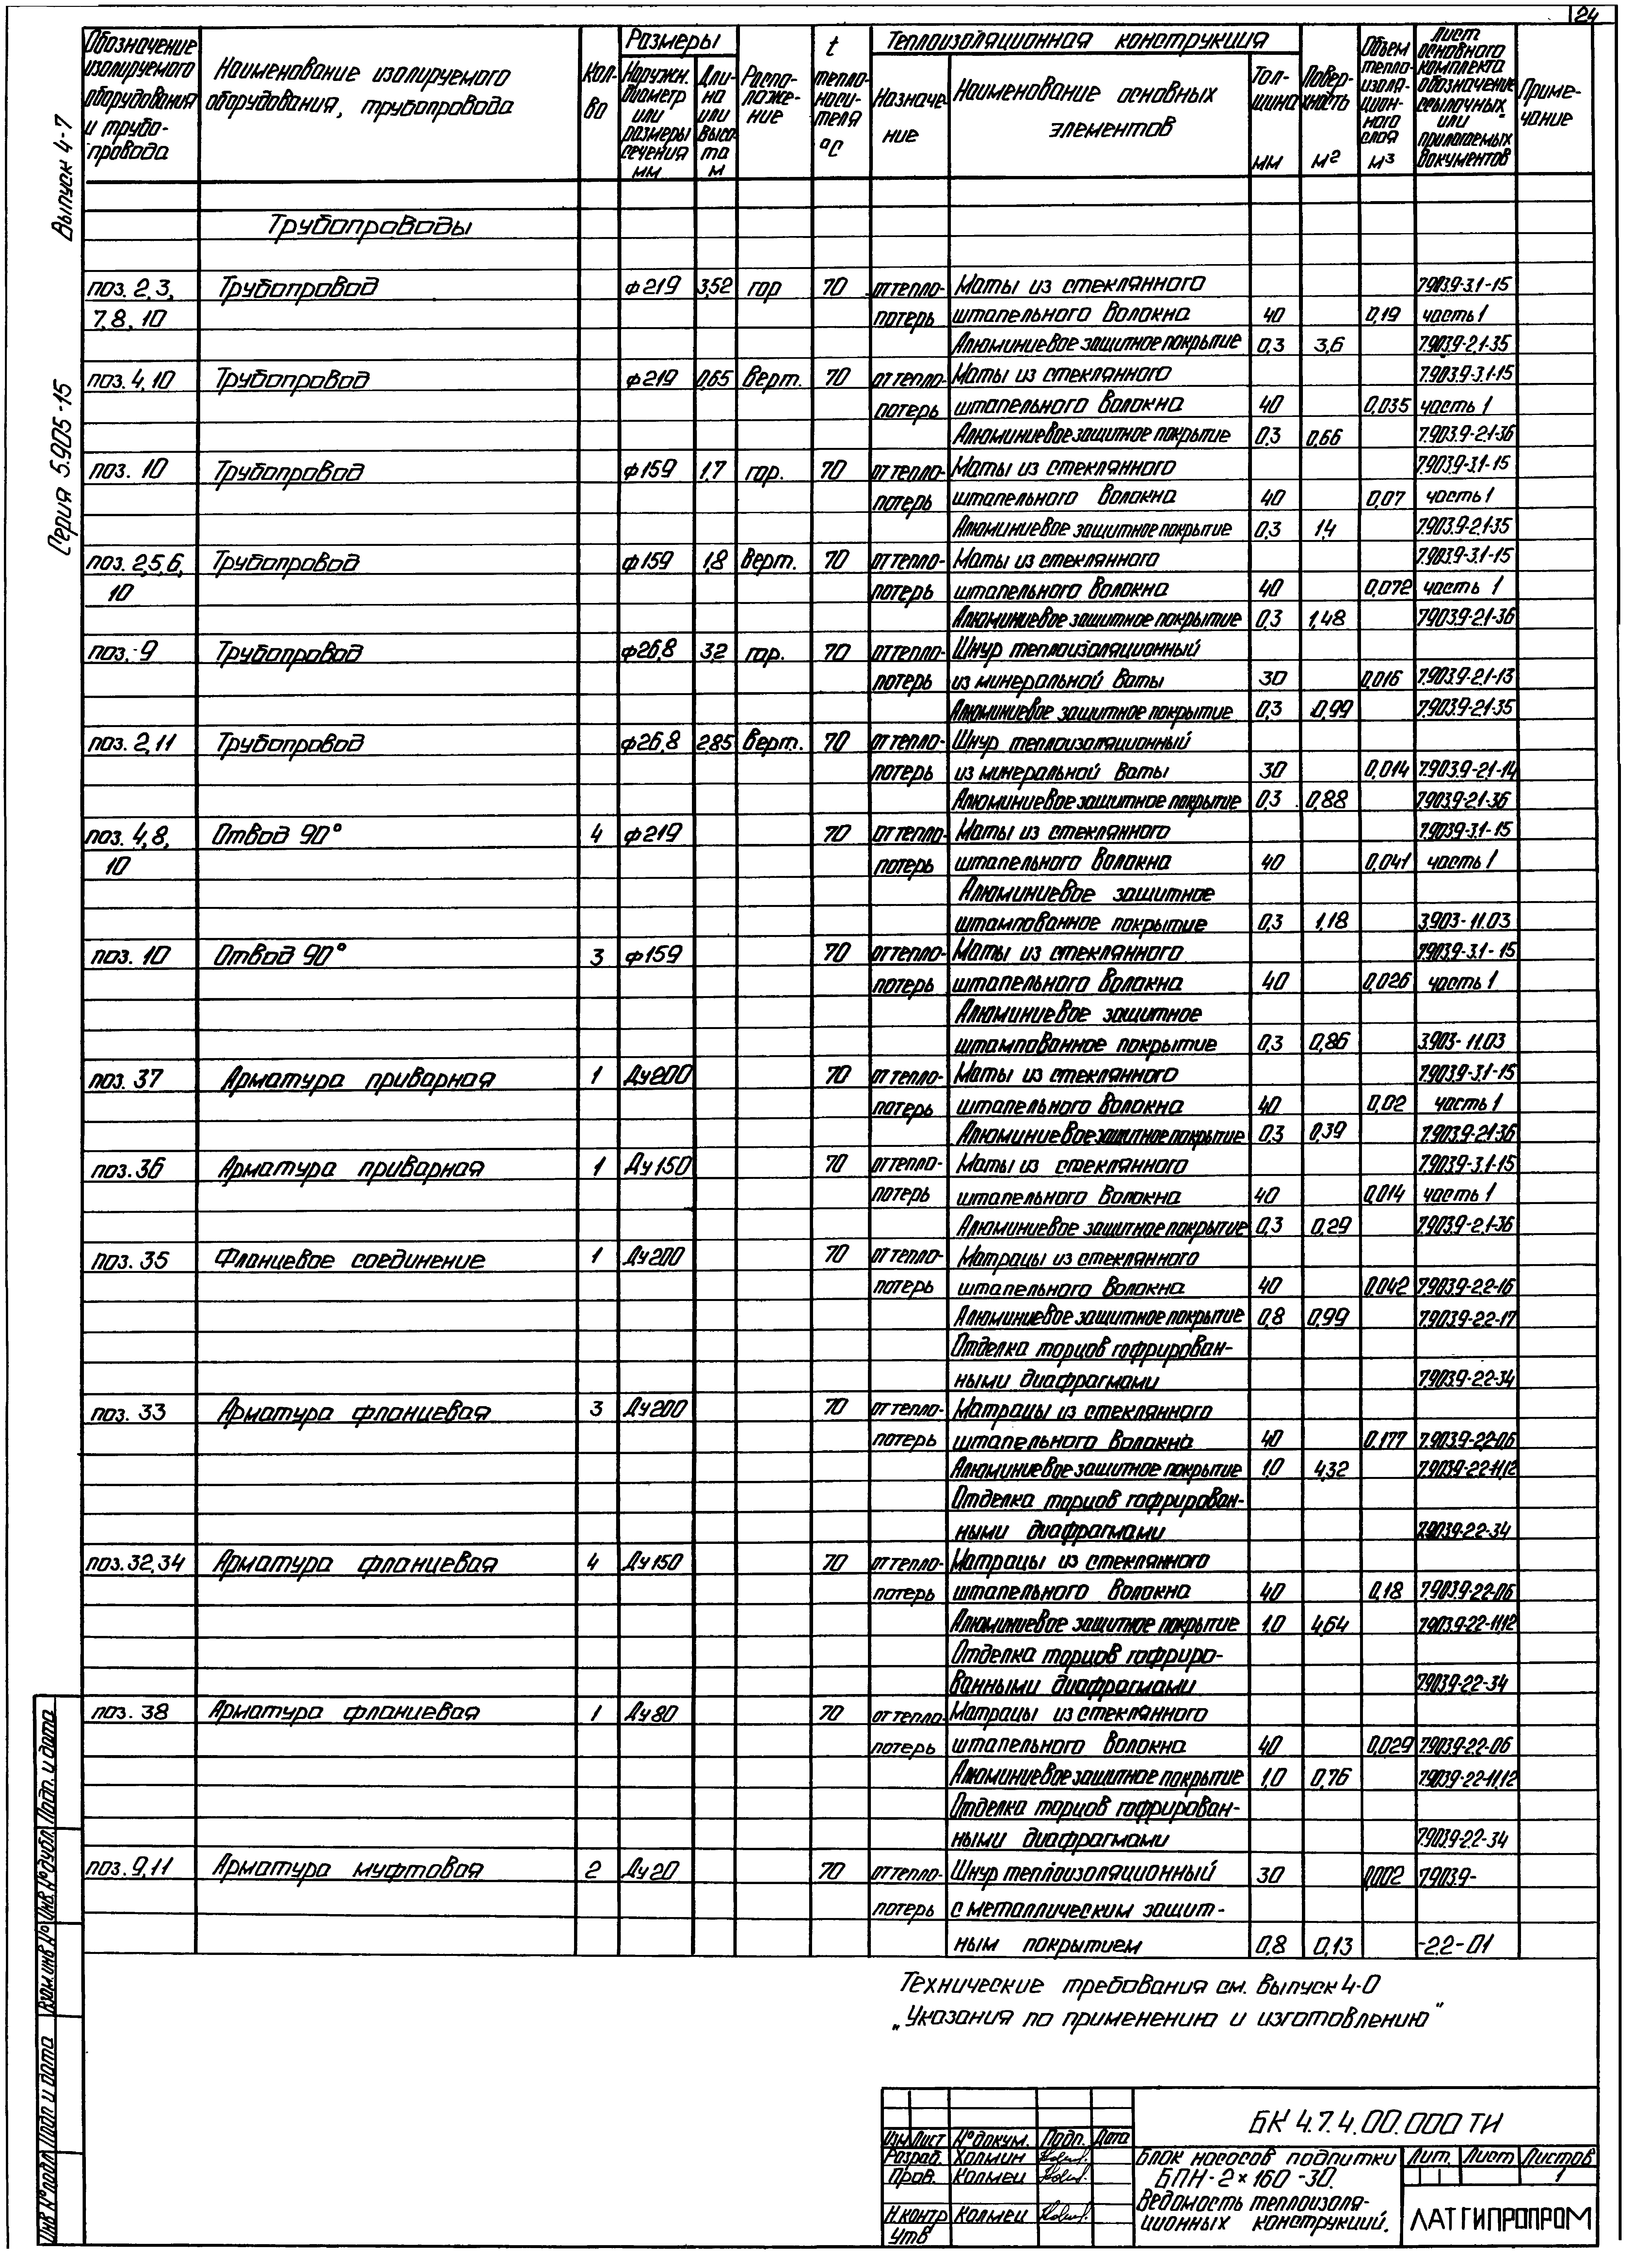 24
Выпуск 4-7
Серия 5.905-15
Обозначение изолируемого оборудования и трубопровода
Наименование изолируемого оборудования, трубопровода
Кол-во
Размеры
Наружн. диаметр или размеры сечения мм
Длина или высота м
Расположение
t теплоносителя °С
Теплоизоляционная конструкция
Назначение
Наименование основных элементов
Толщина мм
Поверхность м²
Объем теплоизоляционного слоя м³
Лист основного комплекта обозначение ссылочных или прилагаемых документов
Примечание
Трубопроводы
поз. 2,3, Трубопровод ф219 3,52 гор 70 от тепло- Маты из стеклянного 7.903.9-3.1-15
7,8,10 потерь штапельного волокна 40 0,19 часть 1
Алюминиевое защитное покрытие 0,3 3,6 7.903.9-2.1-35
поз. 4,10 Трубопровод ф219 0,65 верт. 70 от тепло- Маты из стеклянного 7.903.9-3.1-15
потерь штапельного волокна 40 0,035 часть 1
Алюминиевое защитное покрытие 0,3 0,66 7.903.9-2.1-36
поз. 10 Трубопровод ф159 1,7 гор. 70 от тепло- Маты из стеклянного 7.903.9-3.1-15
потерь штапельного волокна 40 0,07 часть 1
Алюминиевое защитное покрытие 0,3 1,4 7.903.9-2.1-35
поз. 2,5,6, Трубопровод ф159 1,8 верт. 70 от тепло- Маты из стеклянного 7.903.9-3.1-15
10 потерь штапельного волокна 40 0,072 часть 1
Алюминиевое защитное покрытие 0,3 1,48 7.903.9-2.1-36
поз. 9 Трубопровод ф26,8 3,2 гор. 70 от тепло- Шнур теплоизоляционный
потерь из минеральной ваты 30 0,016 7.903.9-2.1-13
Алюминиевое защитное покрытие 0,3 0,99 7.903.9-2.1-35
поз. 2,11 Трубопровод ф26,8 2,85 верт. 70 от тепло- Шнур теплоизоляционный
потерь из минеральной ваты 30 0,014 7.903.9-2.1-14
Алюминиевое защитное покрытие 0,3 0,88 7.903.9-2.1-36
поз. 4,8, Отвод 90° 4 ф219 70 от тепло- Маты из стеклянного 7.903.9-3.1-15
10 потерь штапельного волокна 40 0,041 часть 1
Алюминиевое защитное
штампованное покрытие 0,3 1,18 3.903-11.03
поз. 10 Отвод 90° 3 ф159 70 от тепло- Маты из стеклянного 7.903.9-3.1-15
потерь штапельного волокна 40 0,026 часть 1
Алюминиевое защитное
штампованное покрытие 0,3 0,86 3.903-11.03
поз. 37 Арматура приварная 1 Ду200 70 от тепло- Маты из стеклянного 7.903.9-3.1-15
потерь штапельного волокна 40 0,02 часть 1
Алюминиевое защитное покрытие 0,3 0,39 7.903.9-2.1-36
поз. 36 Арматура приварная 1 Ду150 70 от тепло- Маты из стеклянного 7.903.9-3.1-15
потерь штапельного волокна 40 0,014 часть 1
Алюминиевое защитное покрытие 0,3 0,29 7.903.9-2.1-36
поз. 35 Фланцевое соединение 1 Ду200 70 от тепло- Матрацы из стеклянного
потерь штапельного волокна 40 0,042 7.903.9-2.2-16
Алюминиевое защитное покрытие 0,8 0,99 7.903.9-2.2-17
Отделка торцов гофрирован-
ными диафрагмами 7.903.9-2.2-34
поз. 33 Арматура фланцевая 3 Ду200 70 от тепло- Матрацы из стеклянного
потерь штапельного волокна 40 0,177 7.903.9-2.2-06
Алюминиевое защитное покрытие 1,0 4,32 7.903.9-2.2-11,12
Отделка торцов гофрирован-
ными диафрагмами 7.903.9-2.2-34
поз. 32,34 Арматура фланцевая 4 Ду150 70 от тепло- Матрацы из стеклянного
потерь штапельного волокна 40 0,18 7.903.9-2.2-06
Алюминиевое защитное покрытие 1,0 4,64 7.903.9-2.2-11,12
Отделка торцов гофриро-
ванными диафрагмами 7.903.9-2.2-34
поз. 38 Арматура фланцевая 1 Ду80 70 от тепло- Матрацы из стеклянного
потерь штапельного волокна 40 0,029 7.903.9-2.2-06
Алюминиевое защитное покрытие 1,0 0,76 7.903.9-2.2-11,12
Отделка торцов гофрирован-
ными диафрагмами 7.903.9-2.2-34
поз. 9,11 Арматура муфтовая 2 Ду20 70 от тепло- Шнур теплоизоляционный 30 0,002 7.903.9-
потерь с металлическим защит-
ным покрытием 0,8 0,13 -2.2-01
Технические требования см. выпуск 4-0
„Указания по применению и изготовлению"
Инв № подл Подп и дата Взам. инв № Инв. № дубл. Подп. и дата
БК 4.7.4.00.000 ТИ
Изм Лист № докум. Подп. Дата
Разраб. Холмин
Пров. Колмец
Н.контр Колмец
Утв
Блок насосов подпитки
БПН-2×160-30.
Ведомость теплоизоля-
ционных конструкций.
Лит. Лист Листов
1
ЛАТГИПРОПРОМ